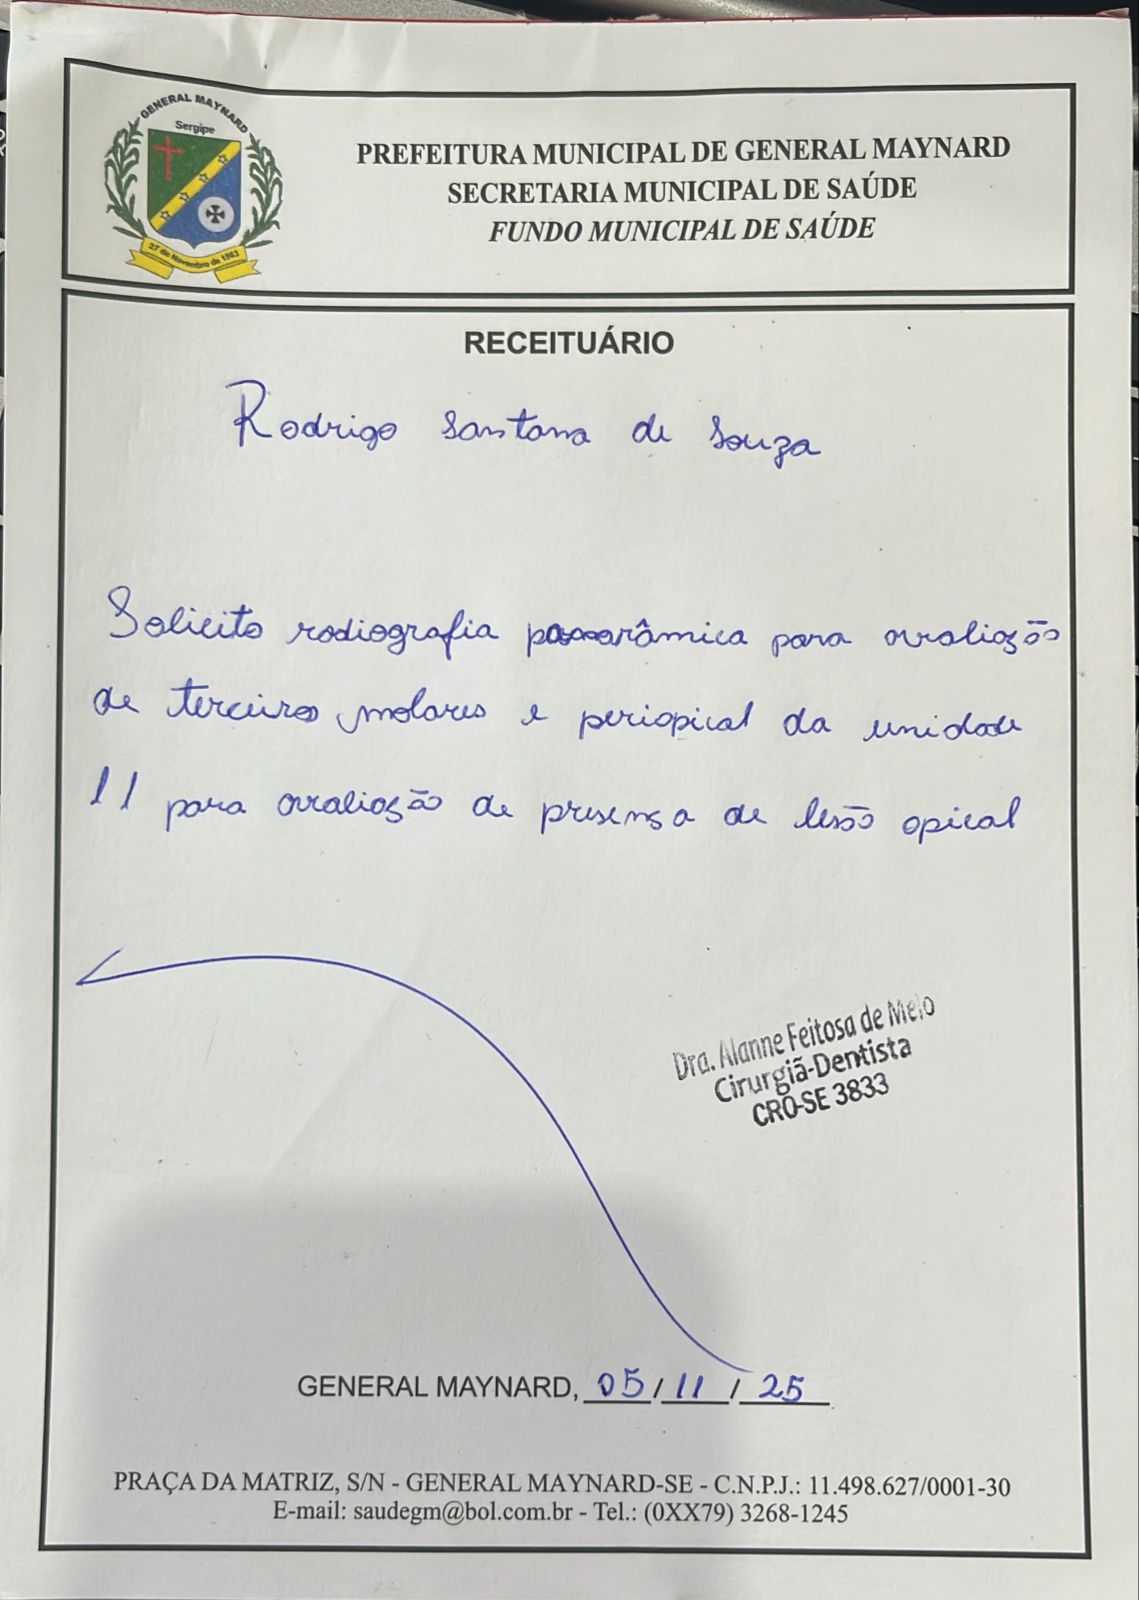 GENERAL MAYNARD
Sergipe
27 de Novembro de 1963
PREFEITURA MUNICIPAL DE GENERAL MAYNARD
SECRETARIA MUNICIPAL DE SAÚDE
FUNDO MUNICIPAL DE SAÚDE
RECEITUÁRIO
Rodrigo Santana de Souza
Solicito radiografia panorâmica para avaliação
de terceiros molares e periapical da unidade
11 para avaliação de presença de lesão apical
Dra. Alanne Feitosa de Melo
Cirurgiã-Dentista
CRO-SE 3833
GENERAL MAYNARD, 05/11/25
PRAÇA DA MATRIZ, S/N - GENERAL MAYNARD-SE - C.N.P.J.: 11.498.627/0001-30
E-mail: saudegm@bol.com.br - Tel.: (0XX79) 3268-1245